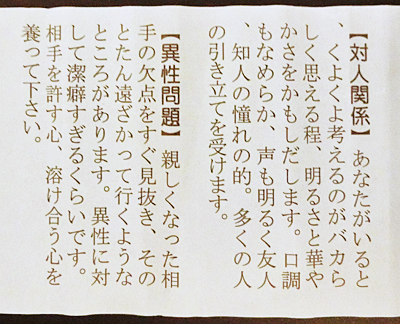 【対人関係】 あなたがいると
、くよくよ考えるのがバカら
しく思える程、明るさと華や
かさをかもしだします。口調
もなめらか、声も明るく友人
、知人の憧れの的。多くの人
の引き立てを受けます。
【異性問題】 親しくなった相
手の欠点をすぐ見抜き、その
とたん遠ざかって行くような
ところがあります。異性に対
して潔癖すぎるくらいです。
相手を許す心、溶け合う心を
養って下さい。